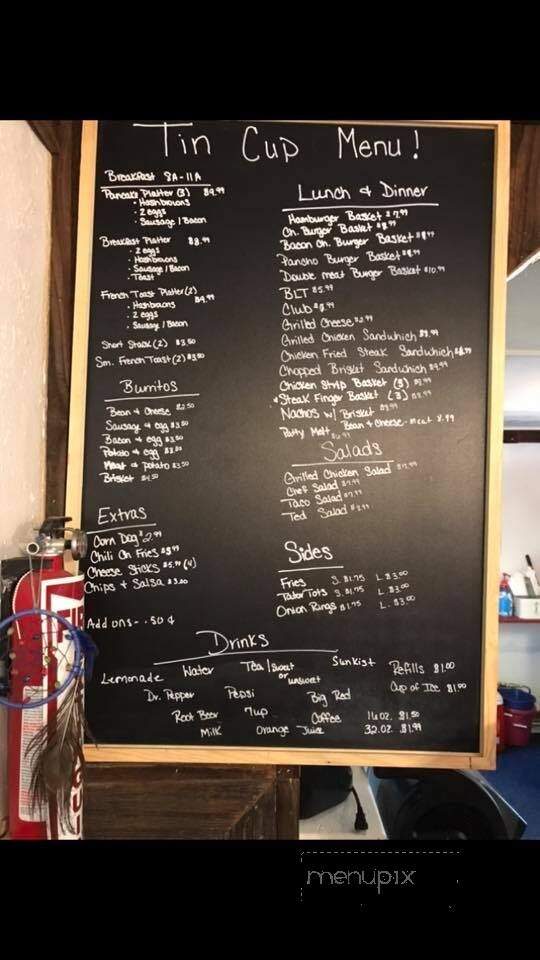 Tin Cup Menu!
Breakfast 8A-11A
Pancake Platter (3) $9.99
• Hashbrowns
• 2 eggs
• Sausage / Bacon
Breakfast Platter $8.99
• 2 eggs
• Hashbrowns
• Sausage / Bacon
• Toast
French Toast Platter (2) $9.99
• Hashbrowns
• 2 eggs
• Sausage / Bacon
Short Stack (2) $3.50
Sm. French Toast (2) $3.50
Burritos
Bean & Cheese $2.50
Sausage & egg $3.50
Bacon & egg $3.50
Potato & egg $3.00
Meat & potato $3.50
Brisket $4.50
Extras
Corn Dog $2.99
Chili Ch Fries
Cheese Sticks $5.99 (4)
Chips & Salsa $3.00
Add ons - .50¢
Lunch & Dinner
Hamburger Basket $7.99
Ch. Burger Basket
Bacon Ch. Burger Basket
Pancho Burger Basket
Double meat Burger Basket $10.99
BLT $5.99
Club
Grilled Cheese $2.99
Grilled Chicken Sandwhich
Chicken Fried Steak Sandwhich
Chopped Brisket Sandwhich
Chicken Strip Basket (3)
Steak Finger Basket (3)
Nachos w/ Brisket
Bean & Cheese - Meat
Patty Melt
Salads
Grilled Chicken Salad
Chef Salad
Taco Salad
Ted Salad
Sides
Fries S. $1.75 L. $3.00
Tator Tots S. $1.75 L. $3.00
Onion Rings $1.75 L. $3.00
Drinks
Lemonade Water Tea / sweet or unsweet Sunkist Refills $1.00
Dr. Pepper Pepsi Big Red Cup of Ice $1.00
Root Beer 7up Coffee 16 oz. $1.50
Milk Orange Juice 32.oz. $1.99
menupix